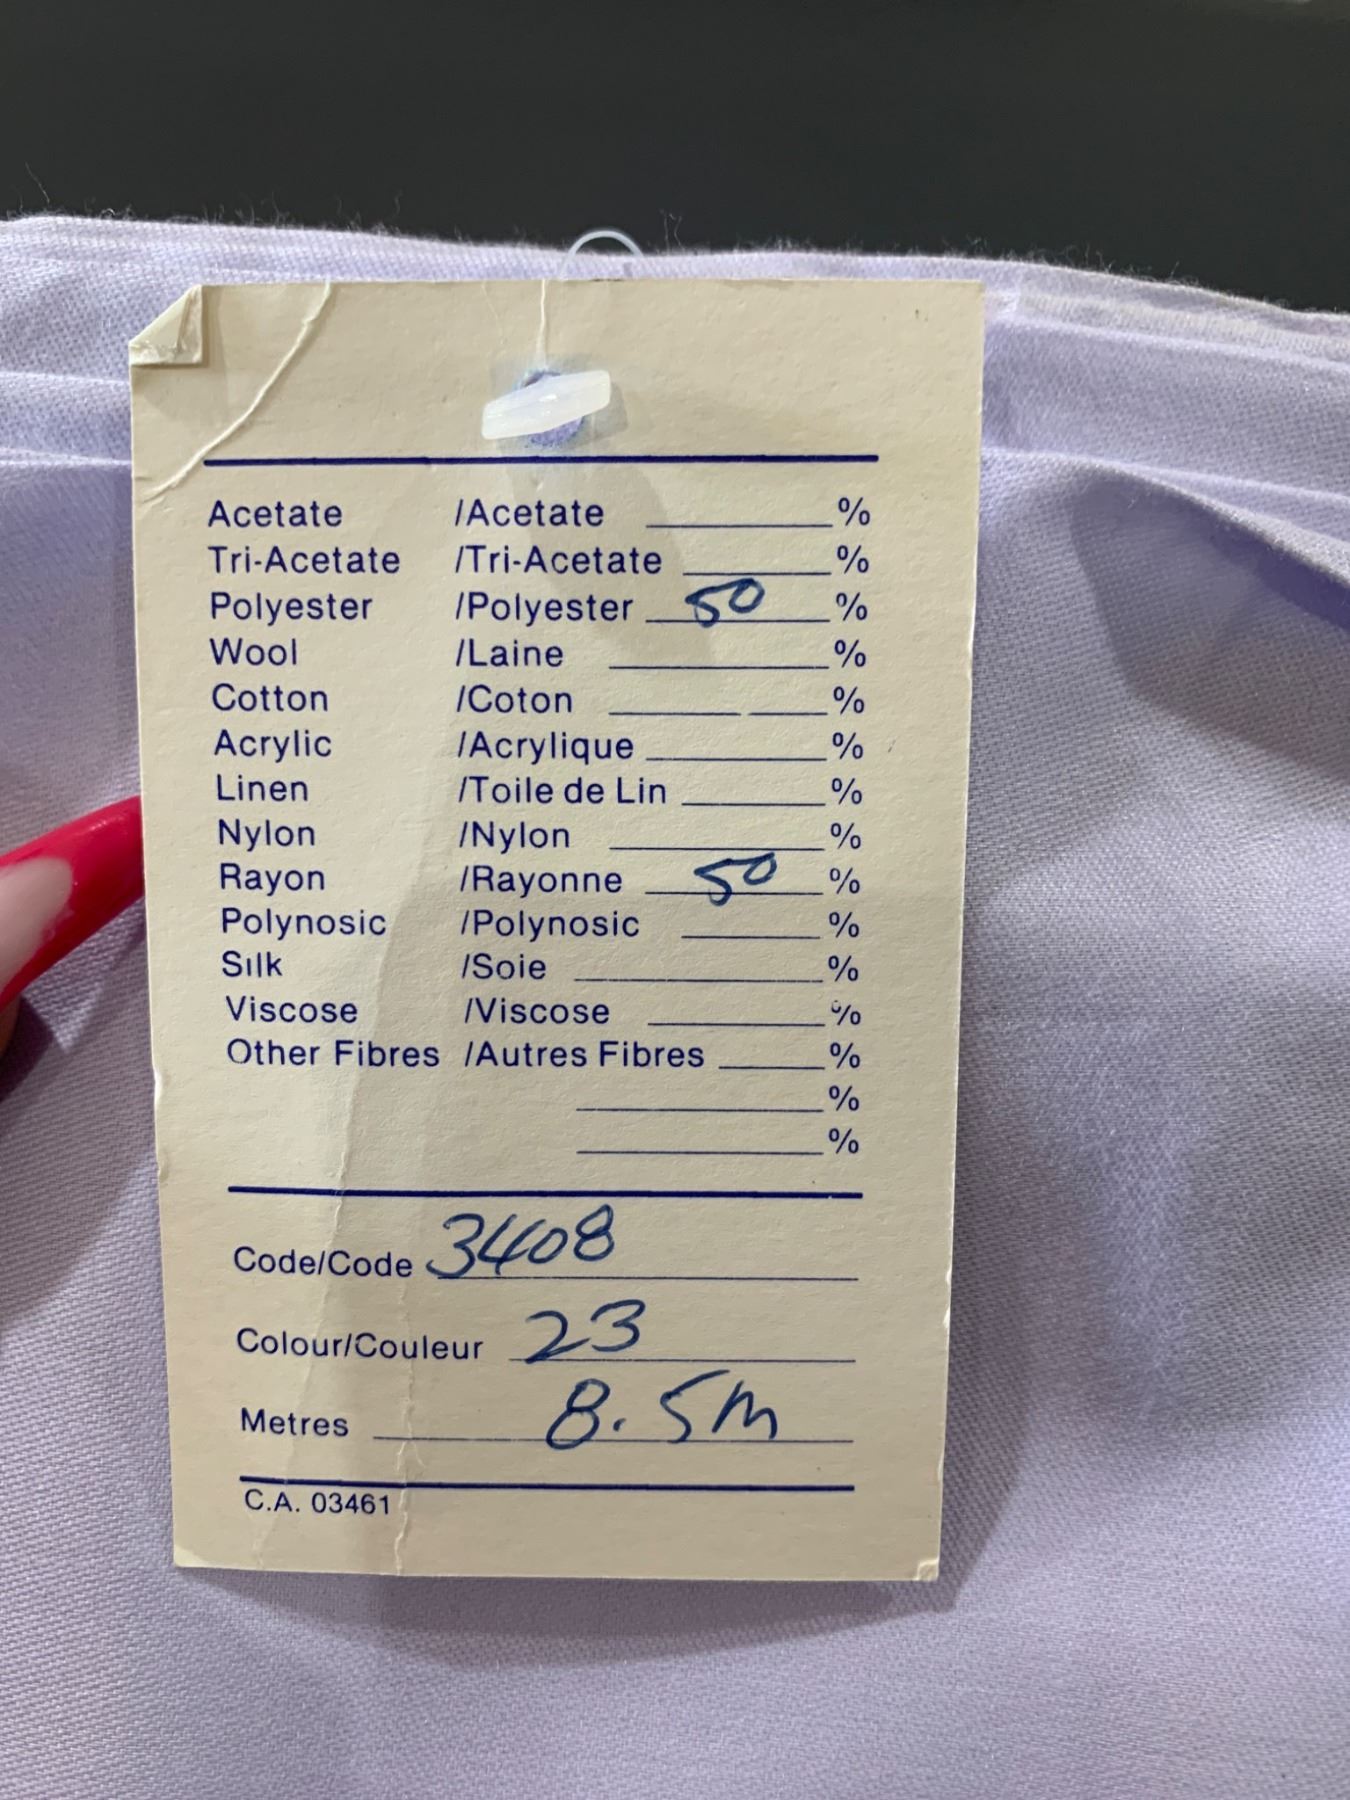 Acetate /Acetate ______%
Tri-Acetate /Tri-Acetate ______%
Polyester /Polyester 50 %
Wool /Laine ______%
Cotton /Coton ______%
Acrylic /Acrylique ______%
Linen /Toile de Lin ______%
Nylon /Nylon ______%
Rayon /Rayonne 50 %
Polynosic /Polynosic ______%
Silk /Soie ______%
Viscose /Viscose ______%
Other Fibres /Autres Fibres ______%
______%
______%
Code/Code 3408
Colour/Couleur 23
Metres 8.5m
C.A. 03461